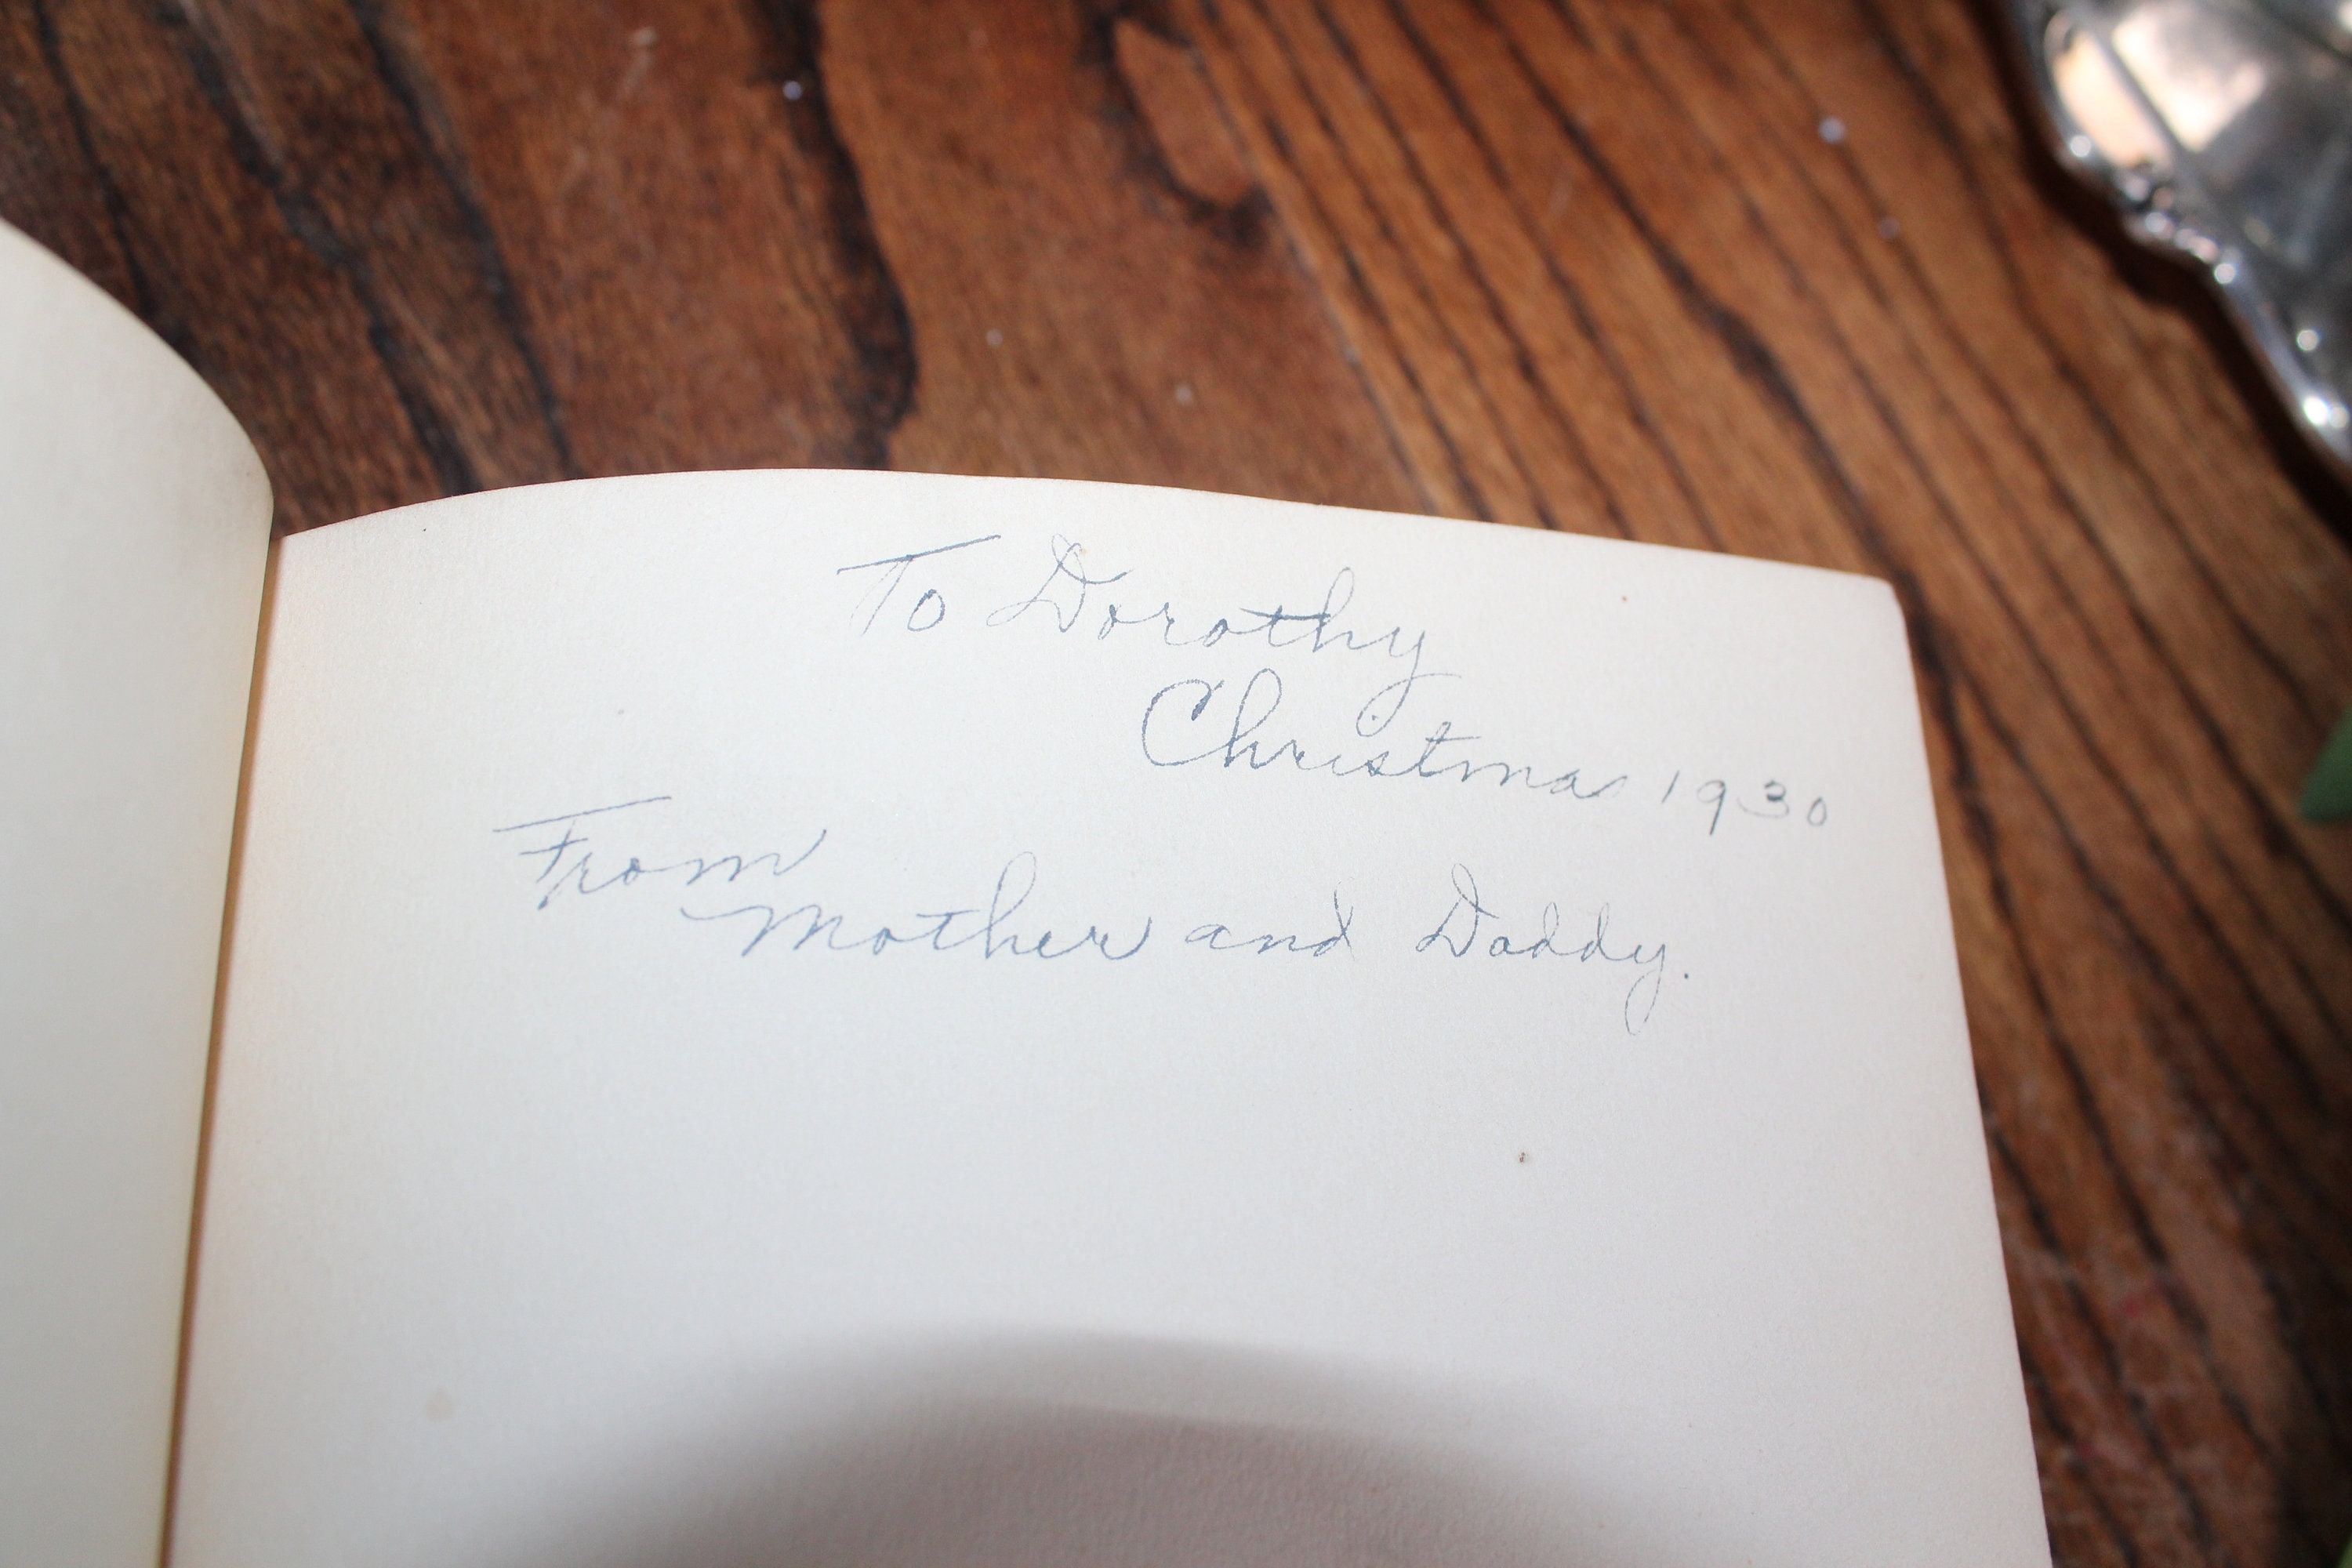 To Dorothy
Christmas 1930
From
Mother and Daddy.